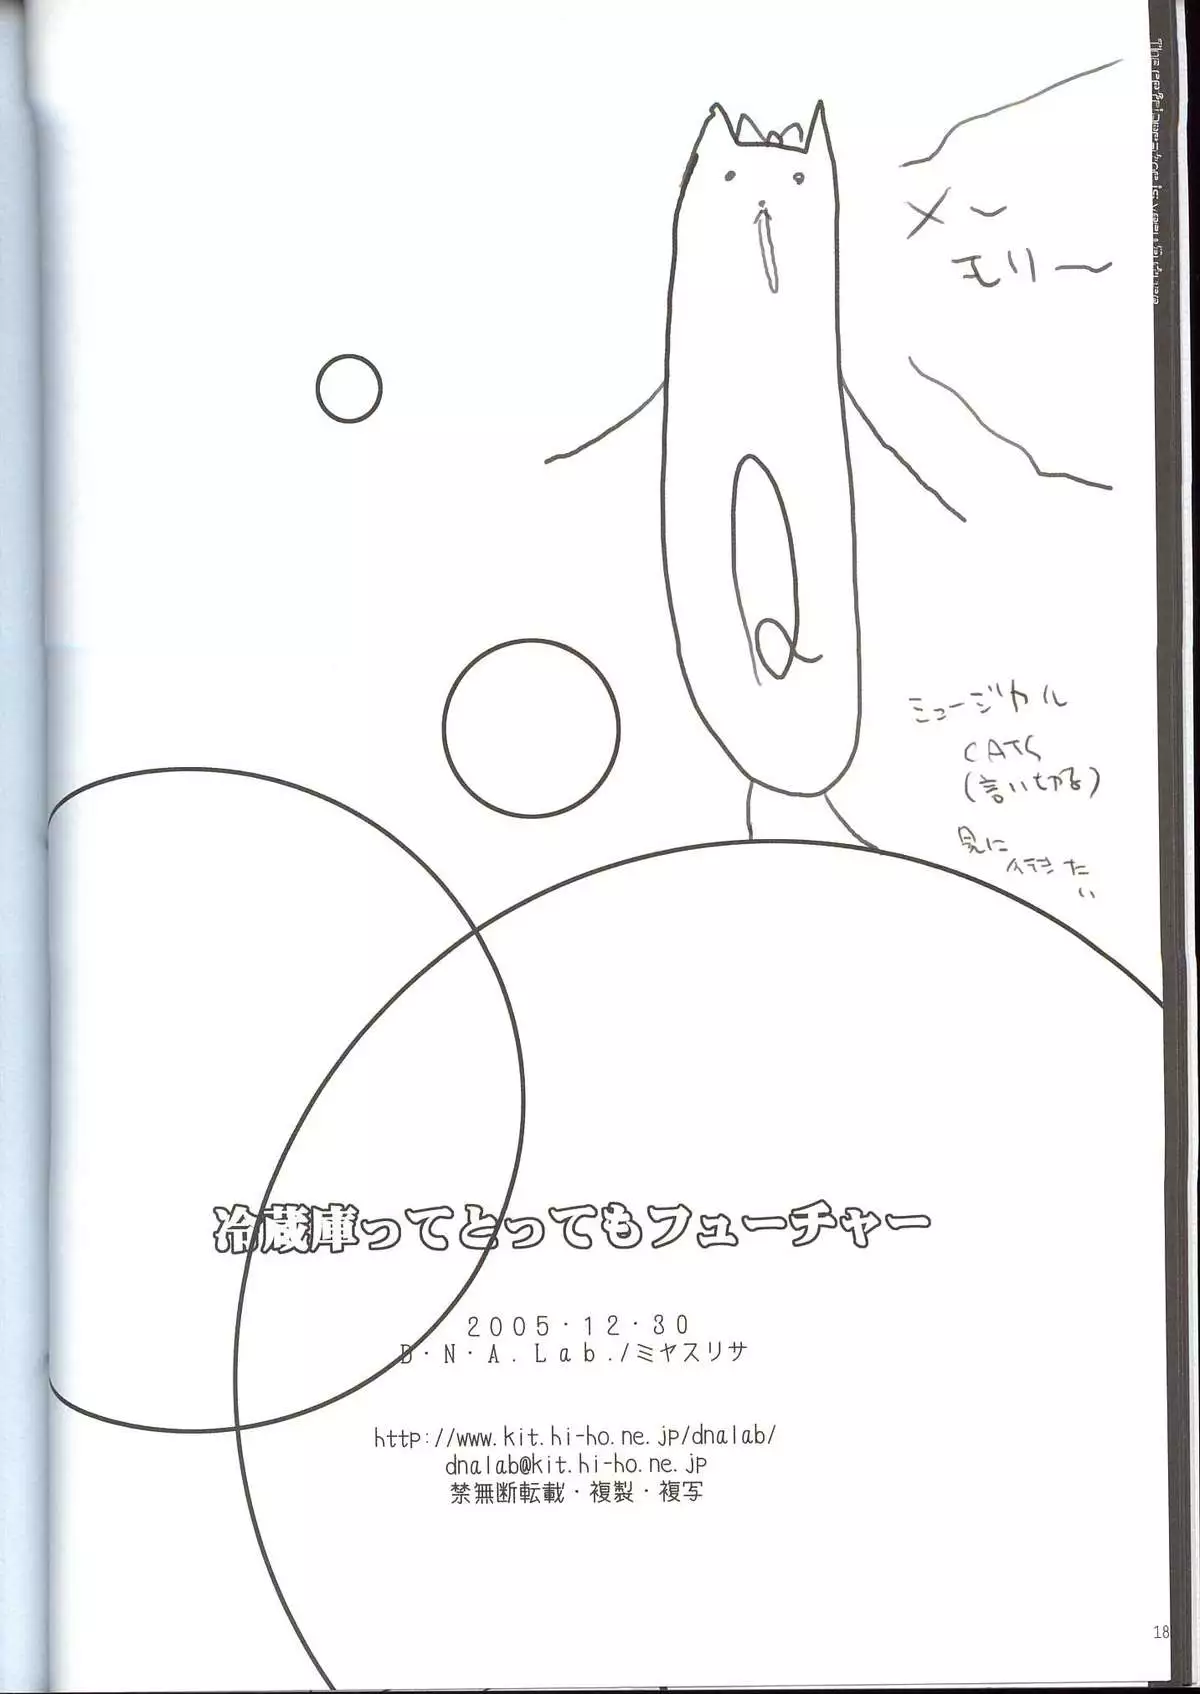 The refrigerator is very Future
メー
モリー
ミュージカル
CATS
(言い切る)
見に
行きた
い
冷蔵庫ってとってもフューチャー
2005・12・30
D・N・A.Lab./ミヤスリサ
http://www.kit.hi-ho.ne.jp/dnalab/
dnalab@kit.hi-ho.ne.jp
禁無断転載・複製・複写
18